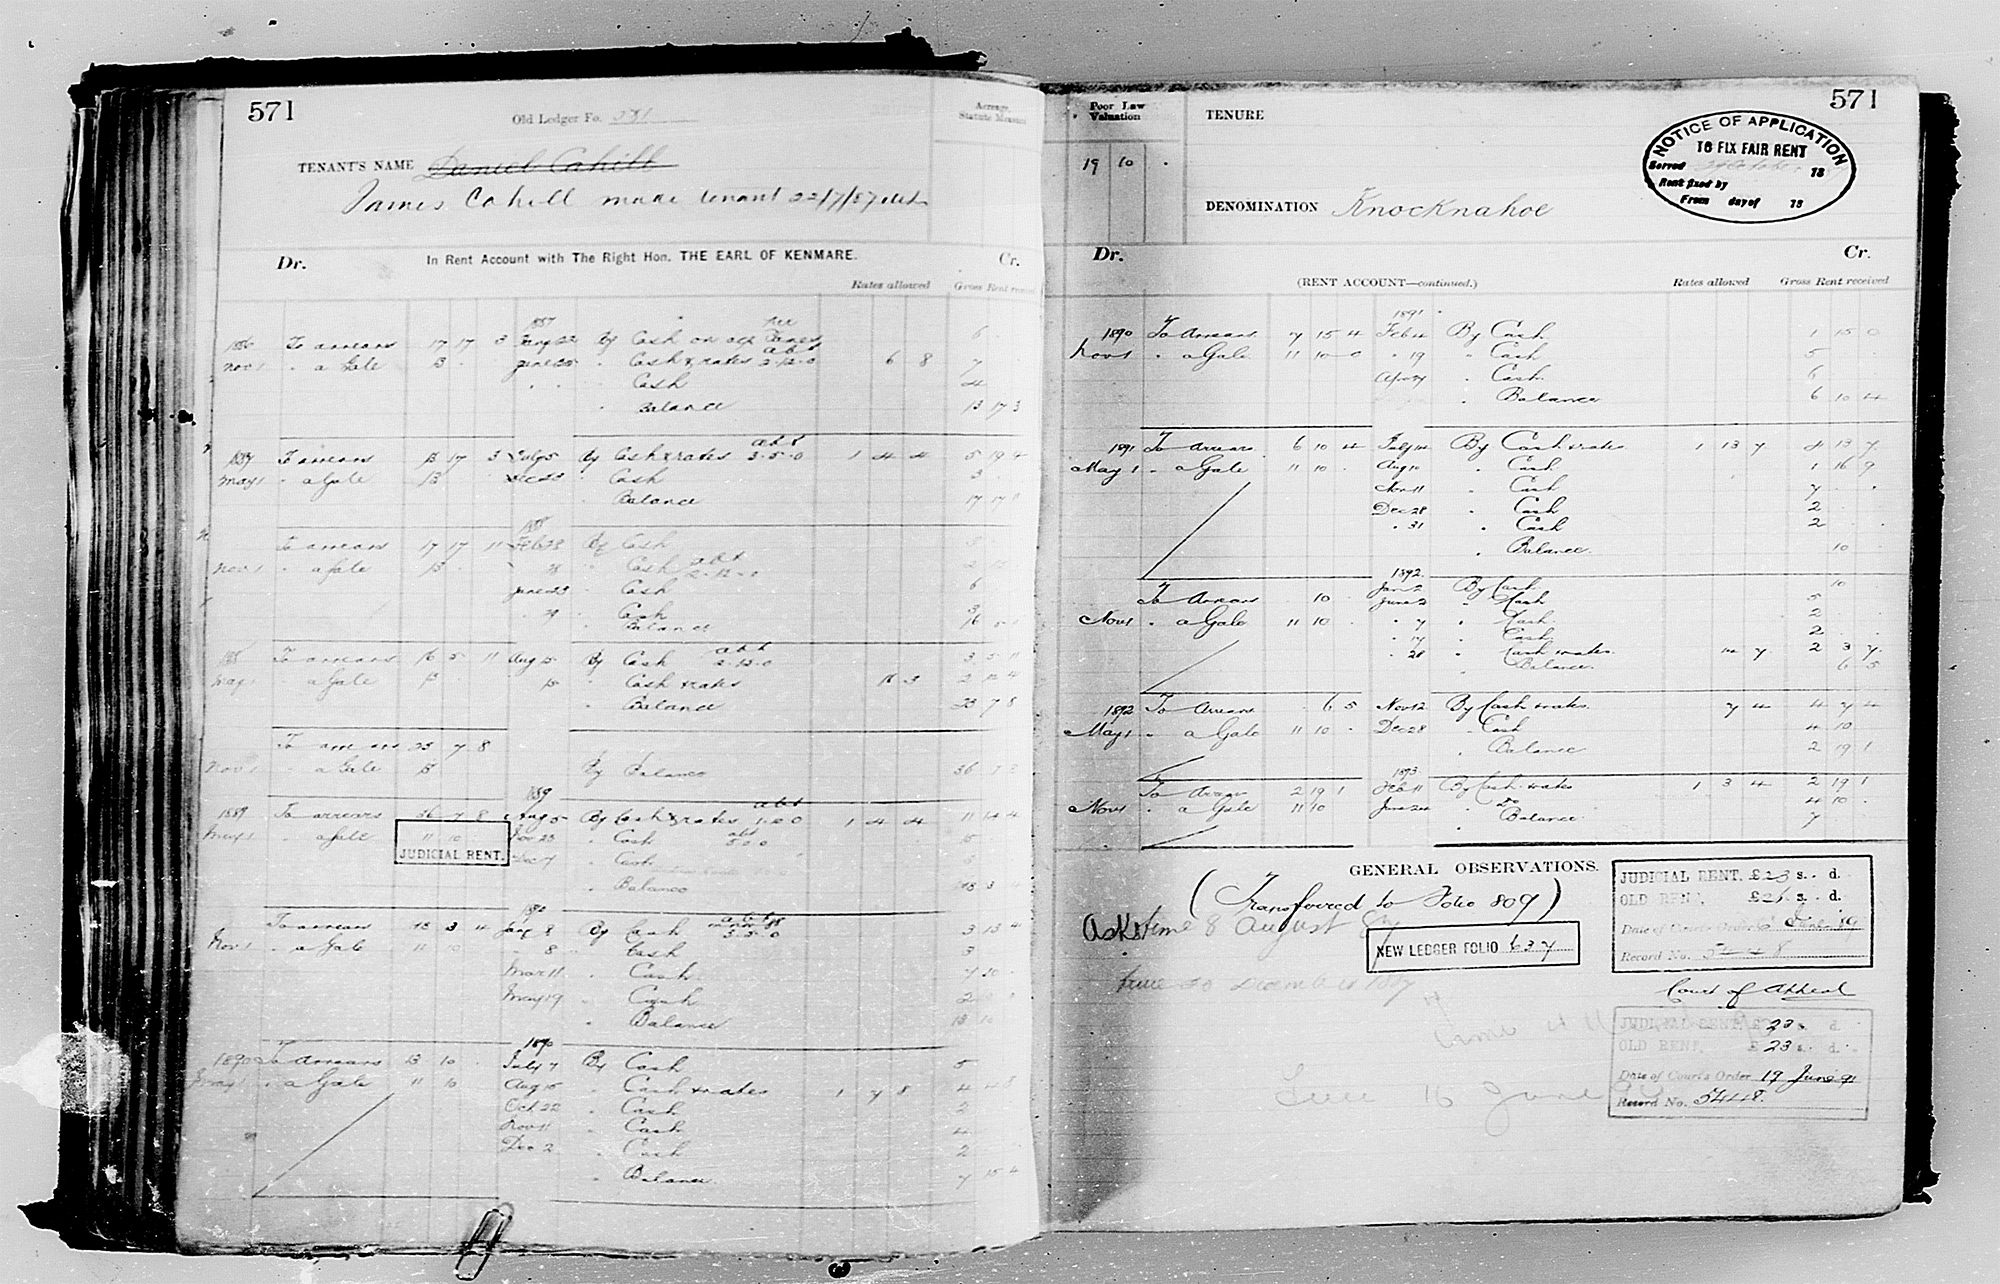 571
Old Ledger Fo.
Acreage Statute Measure
TENANT'S NAME Daniel Cahill
James Cahill made tenant 22/7/87
Dr. In Rent Account with The Right Hon. THE EARL OF KENMARE. Cr.
Rates allowed Gross Rent received
1887
1886 To arrears 17 17 3 By Cash on acc 6
Nov 1 " a Gale 13 June 25 " Cash & rates abt 2-12-0 6 8 7
" Cash 4
" Balance 13 17 3
1887 To arrears 13 17 3 July 5 By Cash & rates abt 3-5-0 1 4 4 5 19 4
May 1 " a Gale 13 Dec 23 " Cash 3
" Balance 17 17 11
1888
To arrears 17 17 11 Feb 28 By Cash
Nov 1 " a Gale 13 " Cash abt 2-12-0
June 23 " Cash 6
" Cash 3
" Balance 16 5 11
1888 To arrears 16 5 11 Aug 15 By Cash abt 2-12-0 3 5 11
May 1 " a Gale 13 " Cash & rates 18 3 2 12 4
" Balance 23 7 8
To arrears 23 7 8
Nov 1 " a Gale 13 By Balance 36 7 8
1889
1889 To arrears 36 7 8 Aug 5 By Cash & rates abt 1-6-0 1 4 4 11 14 4
May 1 " a Gale 11 10 Nov 23 " Cash abt 5-0-0 15
JUDICIAL RENT. Dec 7 " Cash
" Balance 18 3 4
1890
To arrears 18 3 4 Jany 8 By Cash 3-5-0 3 13 4
Nov 1 " a Gale 11 10 8 " Cash 3
Mar 11 " Cash 7 10
May 19 " Cash 2
" Balance 13 10
1890
1890 To Arrears 13 10 July 7 By Cash 5
May 1 " a Gale 11 10 Aug 15 " Cash & rates 1 7 8 4 4 8
Oct 22 " Cash 2
Nov 11 " Cash 4
Dec 2 " Cash 2
" Balance 7 15 4
Poor Law Valuation
19 10
TENURE
571
NOTICE OF APPLICATION
TO FIX FAIR RENT
Served 18
Rent fixed by
From day of 18
DENOMINATION Knocknahoe
Dr. Cr.
(RENT ACCOUNT—continued.) Rates allowed Gross Rent received
1891
1890 To Arrears 7 15 4 Feb 4 By Cash 1 15 0
Nov 1 " a Gale 11 10 0 " 19 " Cash 5
" Cash 6
" Balance 6 10 4
1891 To Arrears 6 10 4 July 14 By Cash & rates 1 13 7 4 13 7
May 1 " a Gale 11 10 Aug 10 " Cash 1 16 9
Nov 11 " Cash 7
Dec 28 " Cash 2
" 31 " Cash 2
" Balance 10
1892
Jan 2 By Cash 10
To Arrears 10 June 2 " Cash 5
Nov 1 " a Gale 11 10 " 7 " Cash 2
" 17 " Cash 2
" 28 " Cash & rates 14 7 2 3 7
" Balance 6 5
1892 To Arrears 6 5 Nov 12 By Cash & rates 7 4 4 7 4
May 1 " a Gale 11 10 Dec 28 " Cash 4 10
" Balance 2 19 1
1893
To Arrears 2 19 1 Feb 11 By Cash & rates 1 3 4 2 19 1
Nov 1 " a Gale 11 10 June 24 " Do 4 10
" Balance 7
GENERAL OBSERVATIONS.
(Transferred to Folio 809)
Asks time 8 August 87
NEW LEDGER FOLIO 637
JUDICIAL RENT, £23 s. d.
OLD RENT, £26 s. d.
Date of Court's Order
Record No. 5448
Court of Appeal
JUDICIAL RENT, £23 s. d.
OLD RENT, £23 s. d.
Date of Court's Order 17 June 91
Record No. 5448.
16 June